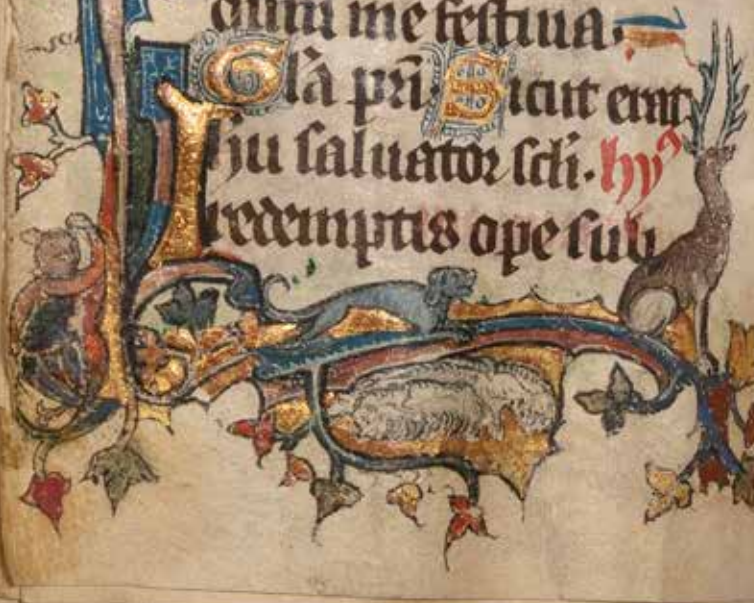 dum me festina.
Glã pri Sicut erat
Ihu saluator scli. hỹ
redemptis ope sub